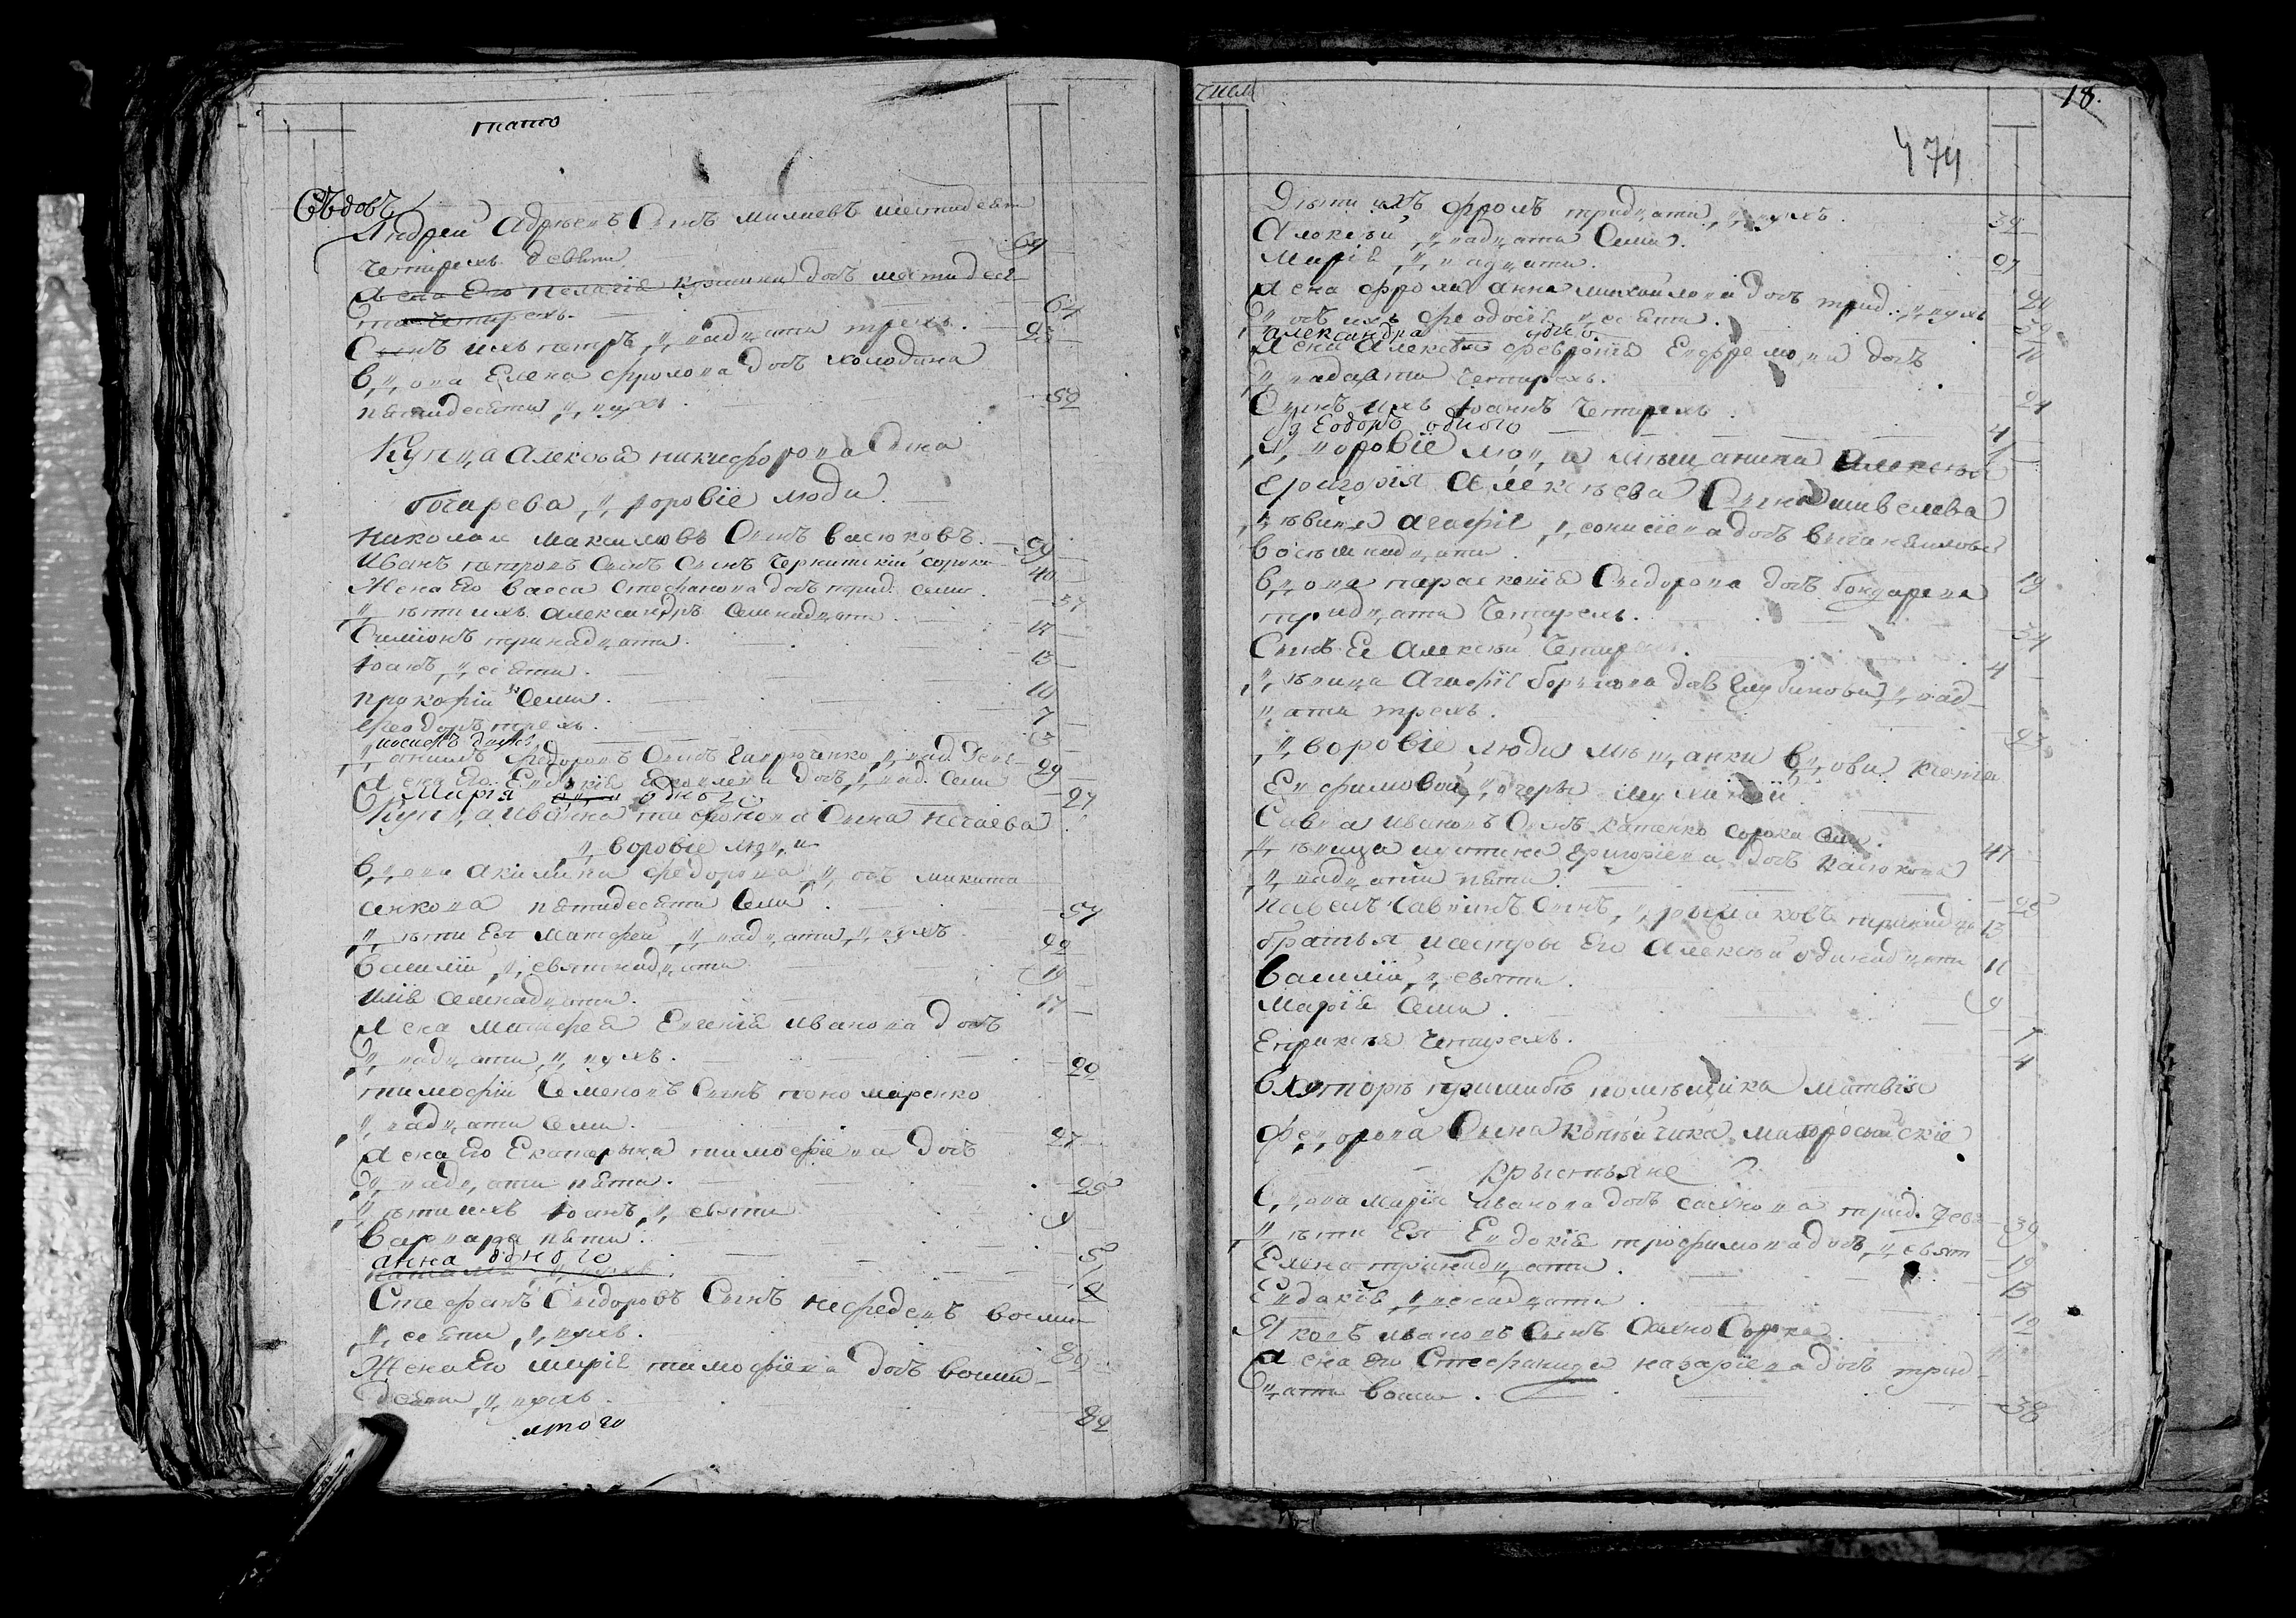 тамо
Сѣдовъ
Андрей Адрѣевъ Сынъ милаевъ шестидеят
четырехъ девяти 69
Жена Его пелагія кузмина дочь шестидеся
та четырехъ 64
Сынъ ихъ петръ двадцати трехъ 23
вдова Елена фролова дочь холодина
пятидесяти двухъ 52
Купца Алексѣя никифорова Сына
богарева дворовіе люди
николай максимовъ Сынъ васюковъ 59
Иванъ петровъ Сынъ Сынъ Чернитскій сорока 40
Жена Его васса Стефанова дочь трид. семи 37
дѣти ихъ Александръ Семнадцати 17
Симіонъ тринадцати 13
Іоанъ десяти 10
прокофій Семи 7
Феодоръ трохъ 3
иосифъ двухъ
акимъ Федоровъ Сынъ Гаврюченко двад. девя 29
Жена Его Евдокія дочь двад. Семи 27
Марія одного
Купца Ивана тимофеева Сына нечаева
дворовіе люди
вдова акилина федорова дочь микита
енкова пятидесяти Семи 57
дѣти Ея матфей двадцати двухъ 22
василій девятнадцати 19
илія семнадцати 17
Жена матфея Евгенія иванова дочь
двадцати двухъ 22
тимофій Семеновъ Сынъ пономаренко
двадцати семи 27
Жена Его Екатерына тимофіева дочь
двадцати пяти 25
дѣти ихъ Іоанъ девяти 9
варвара пяти 5
анна одного
наталія двухъ 2
Стефанъ Сидоровъ Сынъ нефедевъ восми
десяти двухъ 82
Жена Его марія тимофіева дочь восми
десяти двухъ 82
итого
числ
18.
474
Дѣти ихъ фролъ тридцати двухъ 32
Алексѣй двадцати Семи 27
Марія двадцати 20
Жена фрола анна михайлова дочь трид. двухъ 32
дочь ихъ феодосія десяти 10
александра одного
Жена Алексѣя феврония Ефремова дочь
двадцати четырехъ 24
Сынъ ихъ Іоаннъ четырехъ 4
Феодоръ одного
дворовіе люди мѣщанина Алексѣя
Григорія Алексѣева Сына шивелева
дѣвица агафія дочь
восемнадцати 19
вдова параскевія Сидорова дочь бондарева
тридцати четырехъ 34
Сынъ Ее Алексѣй четырехъ 4
дѣвица Агафія дочь двад
цати трехъ 23
дворовіе люди мѣщанки вдови Ксенія
Ефимовой дочери
Савва Ивановъ Сынъ катенко сорока Семи 47
дѣвица Григоріева дочь васюкова
двадцати пяти 25
павелъ Саввинъ Сынъ тринадца 13
братья и сестры Его Алексѣй одинадцати 11
василій девяти 9
Марія Семи 7
Евпраксія четырехъ 4
помѣщика матвія
федорова Сына копѣйчика малоросійскіе
крыстьяне
вдова марія иванова дочь сахнова трид. девя 39
дѣти Ея Евдокія трофимова дочь девят 19
Елена тринадцати 13
Евдокія двенадцати 12
Яковъ ивановъ Сынъ Сахно Сорока
Жена Его Стефанида назаріева дочь трид
цати восми 38